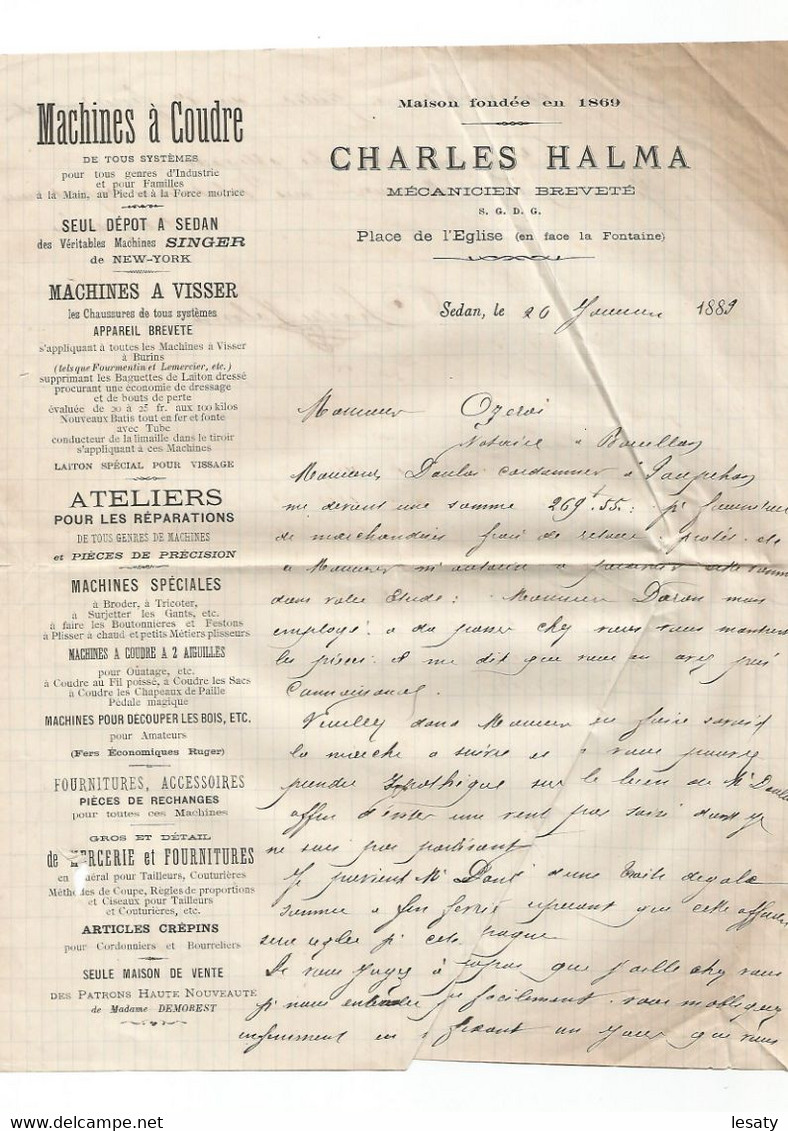 Machines à Coudre
DE TOUS SYSTÈMES
pour tous genres d'Industrie
et pour Familles
à la Main, au Pied et à la Force motrice
SEUL DÉPOT A SEDAN
des Véritables Machines SINGER
de NEW-YORK
MACHINES A VISSER
les Chaussures de tous systèmes
APPAREIL BREVETÉ
s'appliquant à toutes les Machines à Visser
à Burins
(tels que Fourmentin et Lemercier, etc.)
supprimant les Baguettes de Laiton dressé
procurant une économie de dressage
et de bouts de perte
évaluée de 20 à 25 fr. aux 100 kilos
Nouveaux Batis tout en fer et fonte
avec Tube
conducteur de la limaille dans le tiroir
s'appliquant à ces Machines
LAITON SPÉCIAL POUR VISSAGE
ATELIERS
POUR LES RÉPARATIONS
DE TOUS GENRES DE MACHINES
et PIÈCES DE PRÉCISION
MACHINES SPÉCIALES
à Broder, à Tricoter,
à Surjetter les Gants, etc.
à faire les Boutonnières et Festons
à Plisser à chaud et petits Métiers plisseurs
MACHINES A COUDRE A 2 AIGUILLES
pour Ouatage, etc.
à Coudre au Fil poissé, à Coudre les Sacs
à Coudre les Chapeaux de Paille
Pédale magique
MACHINES POUR DÉCOUPER LES BOIS, ETC.
pour Amateurs
(Fers Économiques Ruger)
FOURNITURES, ACCESSOIRES
PIÈCES DE RECHANGES
pour toutes ces Machines
GROS ET DÉTAIL
de MERCERIE et FOURNITURES
en général pour Tailleurs, Couturières
Méthodes de Coupe, Règles de proportions
et Ciseaux pour Tailleurs
et Couturières, etc.
ARTICLES CRÉPINS
pour Cordonniers et Bourreliers
SEULE MAISON DE VENTE
DES PATRONS HAUTE NOUVEAUTE
de Madame DEMOREST
Maison fondée en 1869
CHARLES HALMA
MÉCANICIEN BREVETÉ
S. G. D. G.
Place de l'Eglise (en face la Fontaine)
Sedan, le 20 Janvier 1889
Monsieur Ozeray
Notaire à Bouillon
Monsieur cordonnier à
me devient une somme 269f.55: p
de marchandises frais de retour protêt de
a Monsieur m' a cette somme
dans votre Etude: Monsieur mon
employé a du passer chez vous vous montrer
les pièces. et me dit que vous en avez pris
Connaissance.
Veuillez donc Monsieur en faire
la marche a suivre et si vous pouvez
prendre sur le bien de Mr
affin d'éviter une vent pas dont je
ne suis pas partisant
Je previent Mr d'une
somme a fin que cette affaire
sera reglée
Si vous Jugez à propos que j'aille chez vous
p nous entendre plus facilement vous m'obligerez
infiniment en fixant un Jour que vous
lesaty